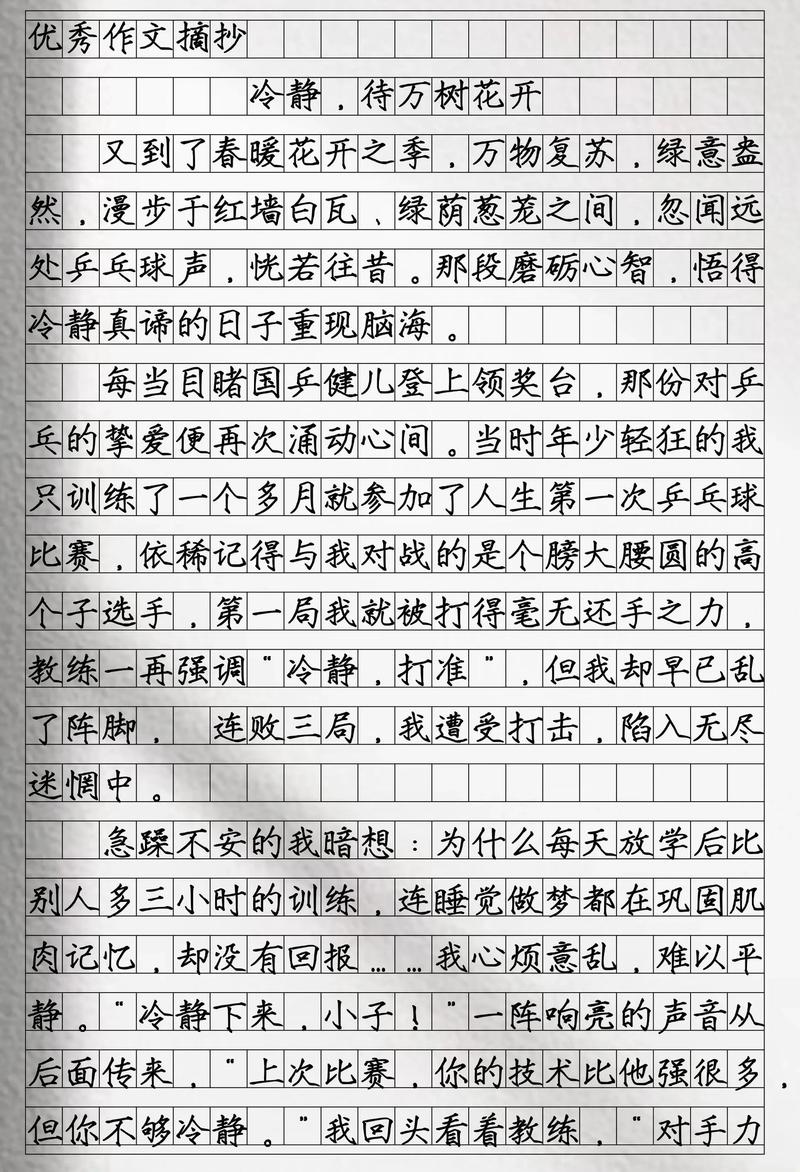 优秀作文摘抄
冷静，待万树花开
又到了春暖花开之季，万物复苏，绿意盎
然，漫步于红墙白瓦、绿荫葱茏之间，忽闻远
处乒乓球声，恍若往昔。那段磨砺心智，悟得
冷静真谛的日子重现脑海。
每当目睹国乒健儿登上领奖台，那份对乒
乓的挚爱便再次涌动心间。当时年少轻狂的我
只训练了一个多月就参加了人生第一次乒乓球
比赛，依稀记得与我对战的是个膀大腰圆的高
个子选手，第一局我就被打得毫无还手之力，
教练一再强调“冷静，打准”，但我却早已乱
了阵脚， 连败三局，我遭受打击，陷入无尽
迷惘中。
急躁不安的我暗想：为什么每天放学后比
别人多三小时的训练，连睡觉做梦都在巩固肌
肉记忆，却没有回报……我心烦意乱，难以平
静。“冷静下来，小子！”一阵响亮的声音从
后面传来，“上次比赛，你的技术比他强很多，
但你不够冷静。”我回头看着教练，“对手力